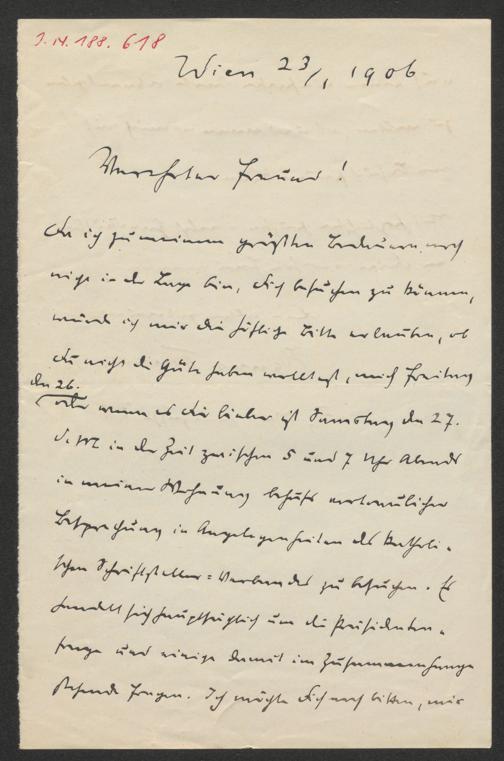 I. N. 188. 618
Wien 23/1 1906
Verehrter Freund!
Da ich zu meinem größten Bedauern noch
nicht in der Lage bin, Dich besuchen zu können,
würde ich mir die höfliche Bitte erlauben, ob
Du nicht die Güte haben wolltest, mich Freitag
den 26.
oder wenn es Dir lieber ist Samstag den 27.
d. M. in der Zeit zwischen 5 und 7 Uhr Abends
in meiner Wohnung behufs vertraulicher
Besprechung in Angelegenheiten des katholi-
schen Schriftsteller=Verbandes zu besuchen. Es
handelt sich hauptsächlich um die Präsidenten-
frage und einige damit im Zusammenhange
stehende Fragen. Ich möchte Dich noch bitten, mir